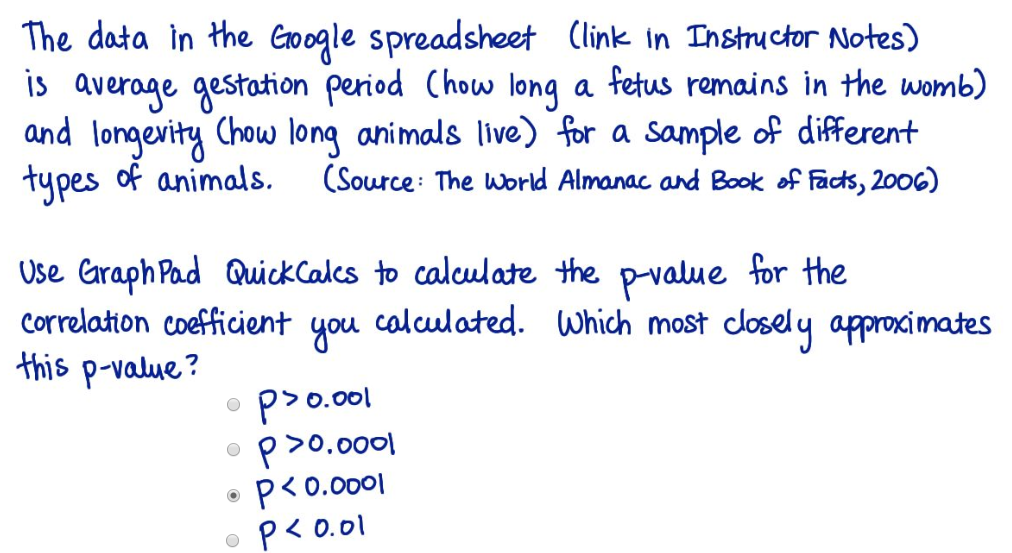 The data in the Google spreadsheet (link in Instructor Notes)
is average gestation period (how long a fetus remains in the womb)
and longevity (how long animals live) for a sample of different
types of animals. (Source: The World Almanac and Book of Facts, 2006)
Use GraphPad QuickCalcs to calculate the p-value for the
correlation coefficient you calculated. Which most closely approximates
this p-value?
p>0.001
p>0.0001
p<0.0001
p<0.01